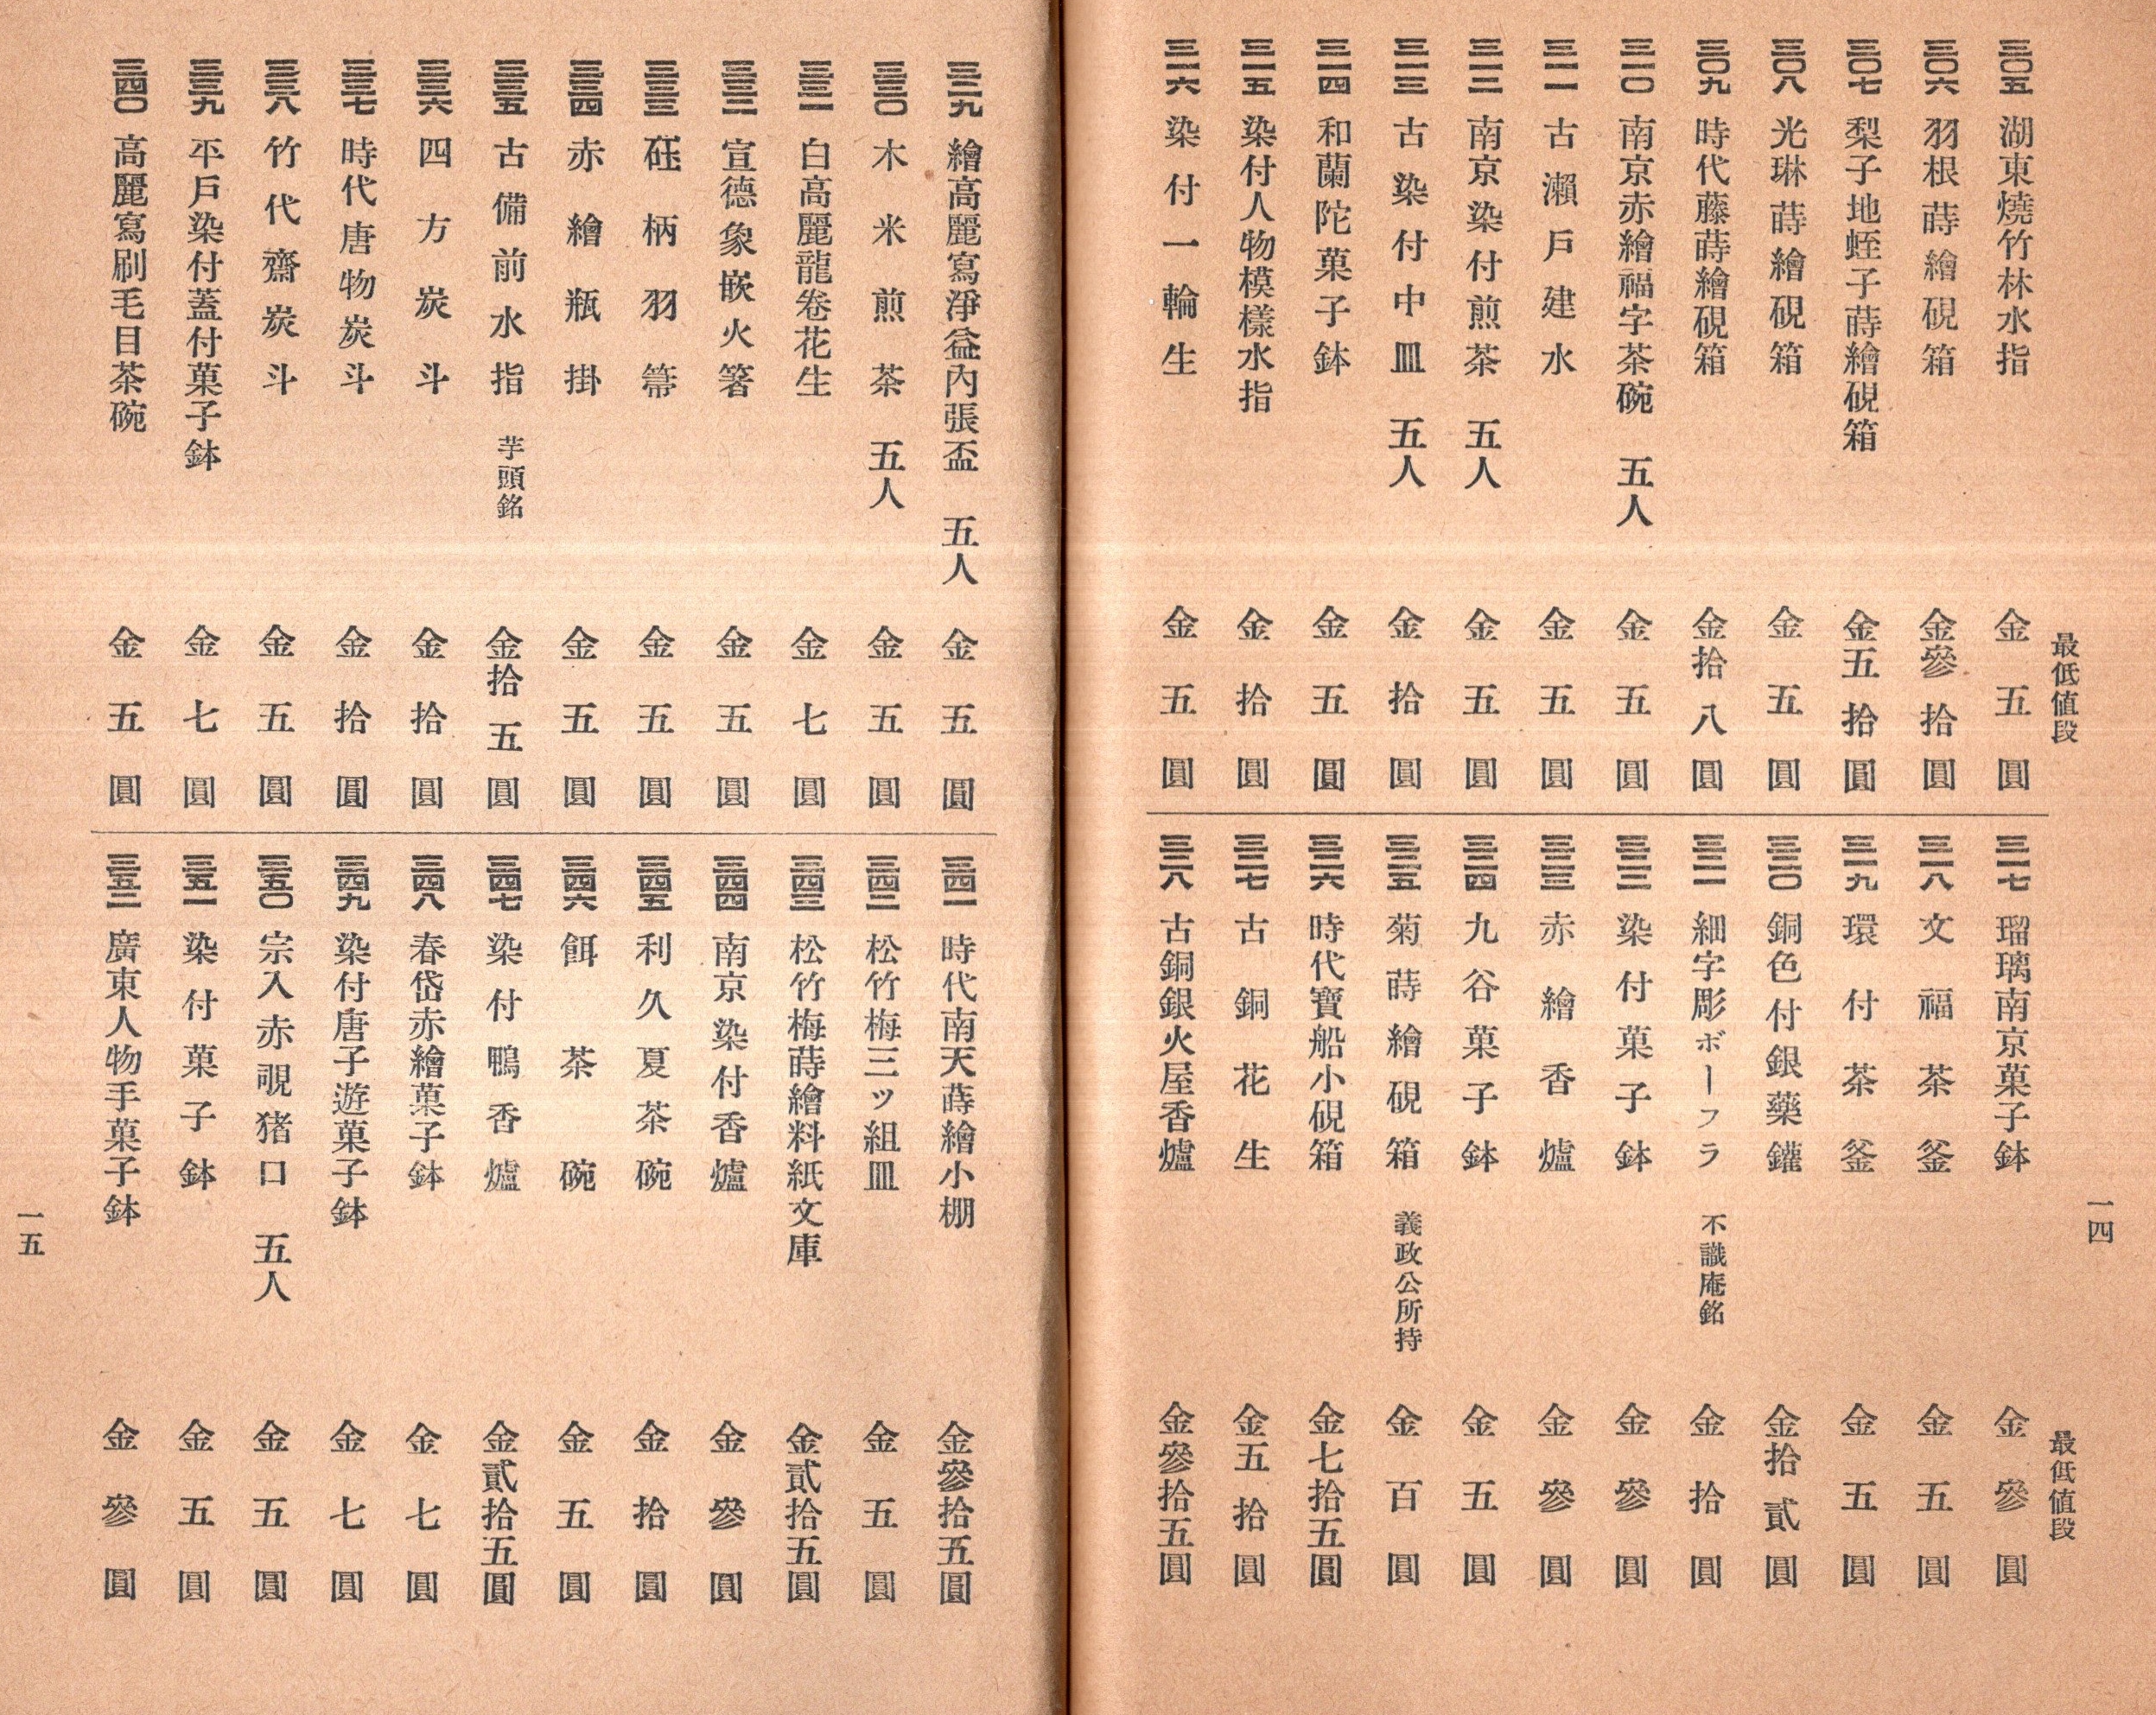 最低値段
三〇五 湖東燒竹林水指 金五圓
三〇六 羽根蒔繪硯箱 金參拾圓
三〇七 梨子地蛭子蒔繪硯箱 金五拾圓
三〇八 光琳蒔繪硯箱 金五圓
三〇九 時代藤蒔繪硯箱 金拾八圓
三一〇 南京赤繪福字茶碗 五人 金五圓
三一一 古瀨戶建水 金五圓
三一二 南京染付煎茶 五人 金五圓
三一三 古染付中皿 五人 金拾圓
三一四 和蘭陀菓子鉢 金五圓
三一五 染付人物模樣水指 金拾圓
三一六 染付一輪生 金五圓
最低値段
三一七 瑠璃南京菓子鉢 金參圓
三一八 文福茶釜 金五圓
三一九 環付茶釜 金五圓
三二〇 銅色付銀藥鑵 金拾貳圓
三二一 細字彫ボーフラ 不識庵銘 金拾圓
三二二 染付菓子鉢 金參圓
三二三 赤繪香爐 金參圓
三二四 九谷菓子鉢 金五圓
三二五 菊蒔繪硯箱 義政公所持 金百圓
三二六 時代寶船小硯箱 金七拾五圓
三二七 古銅花生 金五拾圓
三二八 古銅銀火屋香爐 金參拾五圓
一四
三二九 繪高麗寫淨益內張盃 五人 金五圓
三三〇 木米煎茶 五人 金五圓
三三一 白高麗龍卷花生 金七圓
三三二 宣德象嵌火箸 金五圓
三三三 砡柄羽箒 金五圓
三三四 赤繪瓶掛 金五圓
三三五 古備前水指 芋頭銘 金拾五圓
三三六 四方炭斗 金拾圓
三三七 時代唐物炭斗 金拾圓
三三八 竹代齋炭斗 金五圓
三三九 平戶染付蓋付菓子鉢 金七圓
三四〇 高麗寫刷毛目茶碗 金五圓
三四一 時代南天蒔繪小棚 金參拾五圓
三四二 松竹梅三ッ組皿 金五圓
三四三 松竹梅蒔繪料紙文庫 金貳拾五圓
三四四 南京染付香爐 金參圓
三四五 利久夏茶碗 金拾圓
三四六 餌茶碗 金五圓
三四七 染付鴨香爐 金貳拾五圓
三四八 春岱赤繪菓子鉢 金七圓
三四九 染付唐子遊菓子鉢 金七圓
三五〇 宗入赤覗猪口 五人 金五圓
三五一 染付菓子鉢 金五圓
三五二 廣東人物手菓子鉢 金參圓
一五